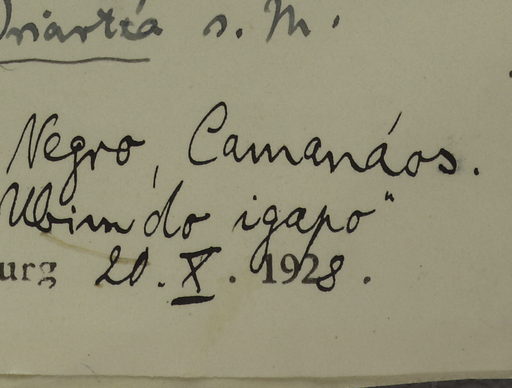 Oriartea s. m.
Negro, Camanáos.
Ubim do igapo"
urg 20. X. 1928.